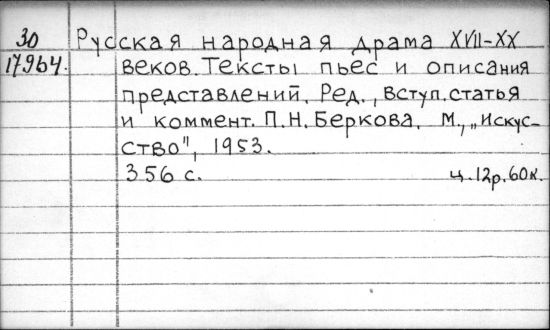 30 Русская народная драма XVII-XX
17964. веков. Тексты пьес и описания
представлений. Ред., вступ. статья
и коммент. П.Н. Беркова. М., „Искус-
ство", 1953.
356 с. ц. 12р. 60к.